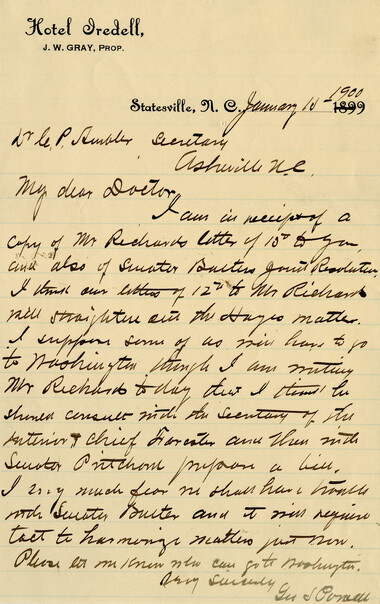 Hotel Iredell,
J. W. GRAY, PROP.
1900
Statesville, N. C., January 1899
Dr C. P. Ambler Secretary
Asheville N.C.
My dear Doctor
I am in receipt of a
copy of Mr Richards letter of 13" to you,
and also of Senator Butlers Joint Resolution
I think our letters of 12" to Mr Richards
will straighten out the Hayes matter.
I suppose some of us will have to go
to Washington though I am writing
Mr Richards to day that I think he
should consult with the Secretary of the
Interior & chief Forester and then with
Senator Pritchard prepare a bill.
I very much fear we shall have trouble
with Senator Butler and it will require
tact to harmonize matters just now.
Please let me know who can go to Washington.
Very Sincerely
Geo S Powell